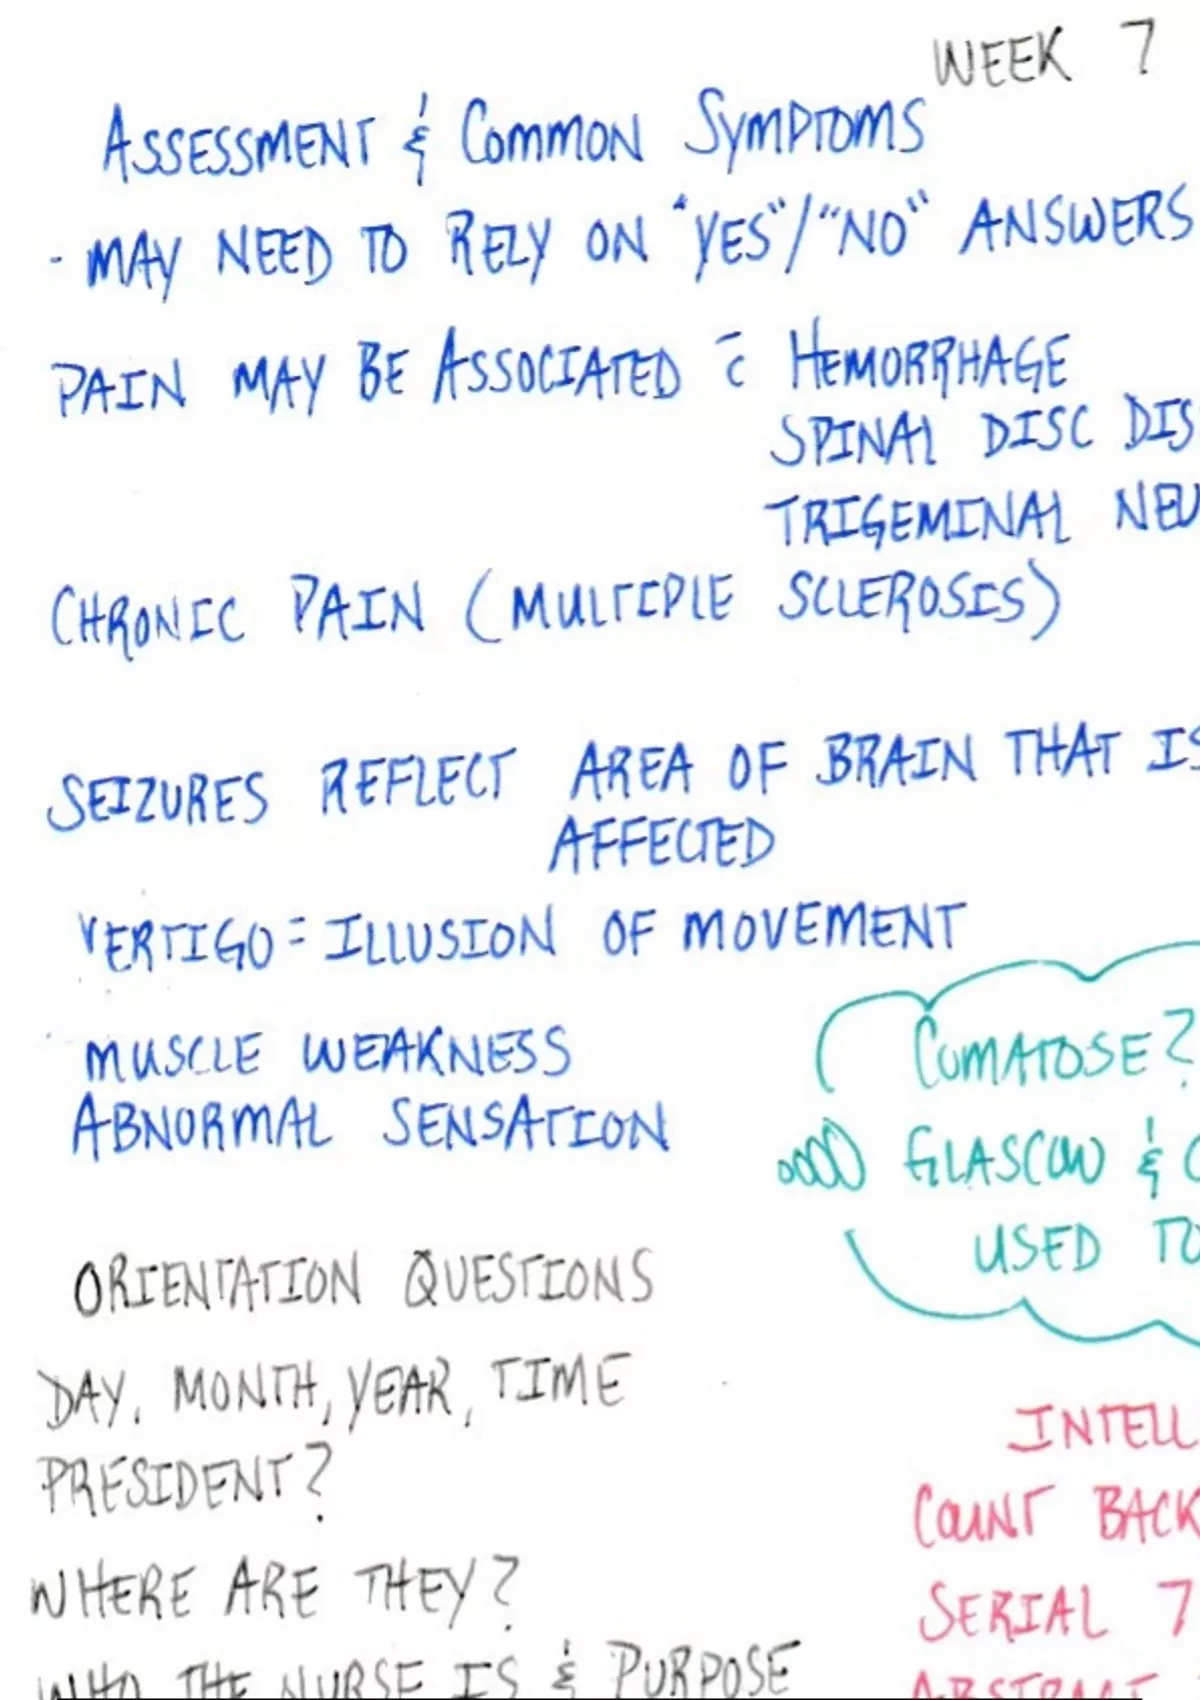 WEEK 7
ASSESSMENT & COMMON SYMPTOMS
- MAY NEED TO RELY ON "YES"/"NO" ANSWERS
PAIN MAY BE ASSOCIATED c̄ HEMORRHAGE
SPINAL DISC DIS
TRIGEMINAL NEU
CHRONIC PAIN (MULTIPLE SCLEROSIS)
SEIZURES REFLECT AREA OF BRAIN THAT IS
AFFECTED
VERTIGO = ILLUSION OF MOVEMENT
MUSCLE WEAKNESS
ABNORMAL SENSATION
COMATOSE?
GLASCOW & C
USED TO
ORIENTATION QUESTIONS
DAY, MONTH, YEAR, TIME
PRESIDENT?
WHERE ARE THEY?
WHO THE NURSE IS & PURPOSE
INTELL
COUNT BACK
SERIAL 7
ABSTRACT